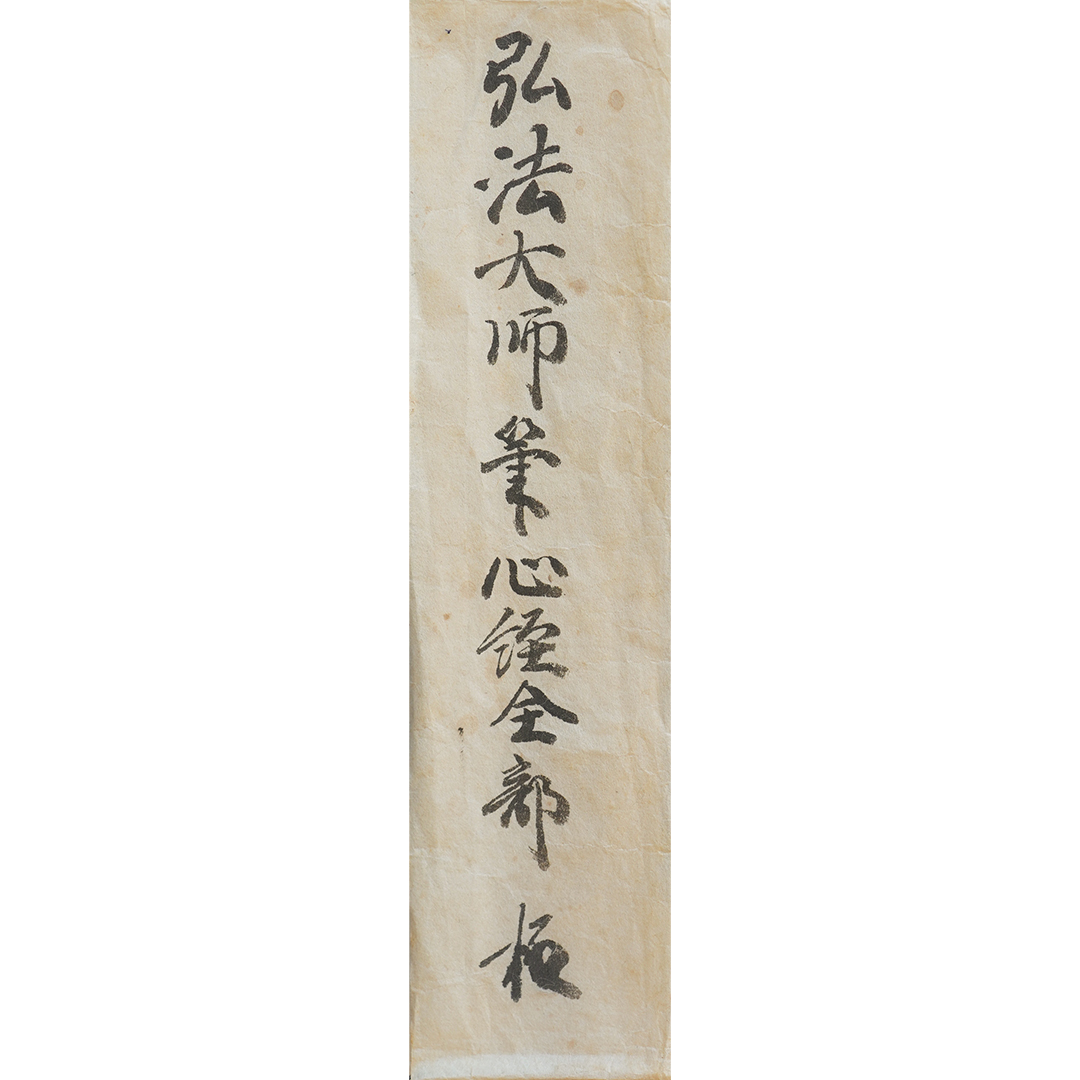 弘法大師筆心経全部 極